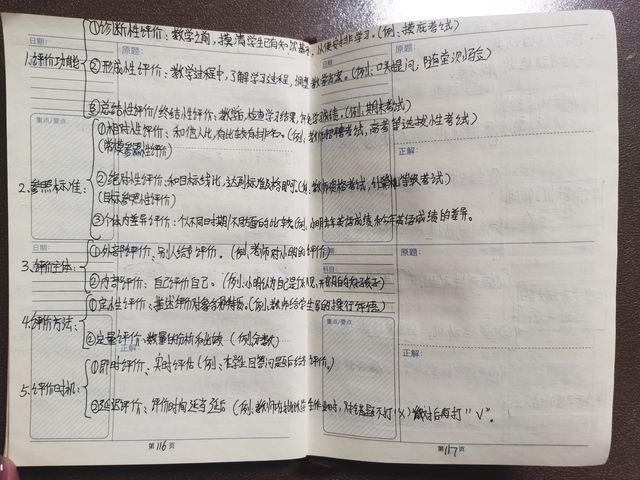 ①诊断性评价：教学之前，摸清学生已有知识基础，从便安排学习。(例：摸底考试)
日期：
原题：
1.评价功能：
②形成性评价：教学过程中，了解学习过程，调整教学方案。(例：口头提问，随堂测验)
③总结性评价/终结性评价：教学后，检查学习结果，学习成绩。(例：期末考试)
重点/要点
①相对性评价：和他人比，有比较有排名。(例：教师招聘考试，高考等选拔性考试)
(常模参照性评价)
正解：
2.参照标准：
②绝对性评价：和目标线比，达到标准及格即可。(例：教师资格考试，计算机等级考试)
(目标参照性评价)
③个体内差异评价：个人不同时期/不同方面的比较。(例：小明去年英语成绩和今年英语成绩的差异。
日期：
原题：
①外部评价：别人给予评价。(例：老师对小明的评价)
3.评价主体：
科目：
②内部评价：自己评价自己。(例：小明认为自己是
①定性评价：描述评价对象各种特质。(例：教师给学生写的操行评语)
4.评价方法：
重点/要点
②定量评价：数量的分析和比较（例：分数）
正解
正解：
①即时评价：实时评估（例：在学生回答问题后给予评价。)
5.评价时机：
②延迟评价：评价时间适当延后（例：教师在批改学生作业时，对错题不打“×”，做对后再打“√”。
第116页
第117页